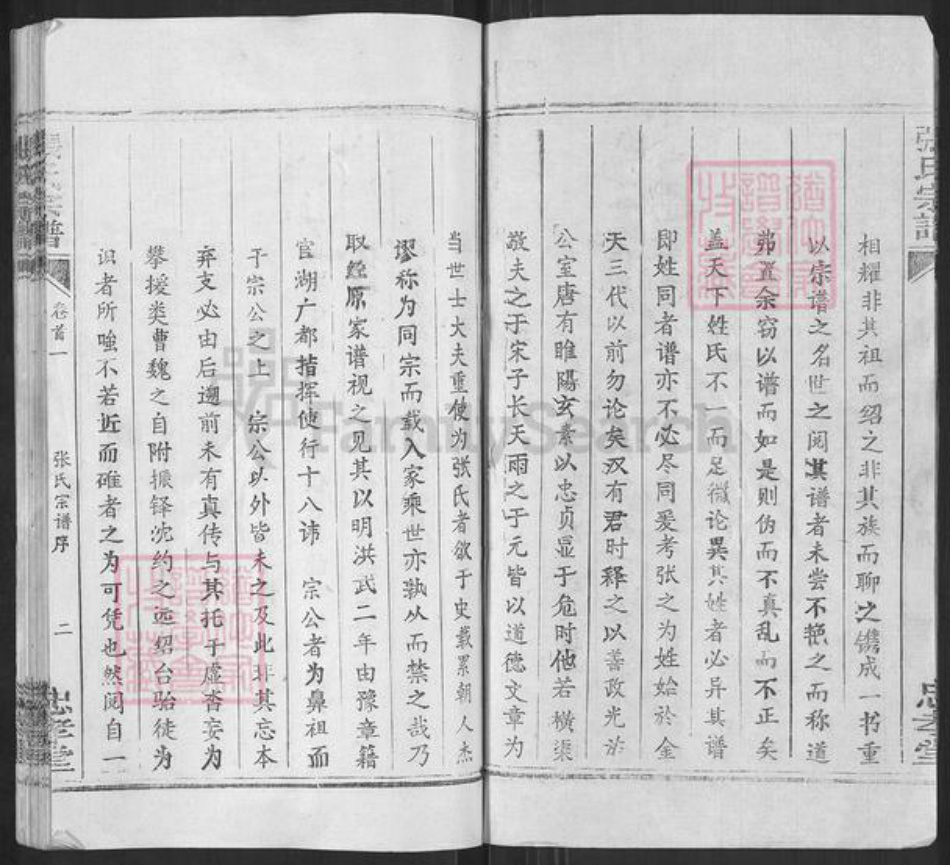 张氏宗谱
相耀非其祖而绍之非其族而聊之镌成一书重
以宗谱之名世之阅其谱者未尝不艳之而称道
弗置余窃以谱而如是则伪而不真乱而不正矣
盖天下姓氏不一而足微论異其姓者必异其谱
即姓同者谱亦不必尽同爰考张之为姓始於金
天三代以前勿论矣汉有君时释之以善政光於
公室唐有睢陽玄素以忠贞显于危时他若横渠
敬夫之于宋子长天雨之于元皆以道德文章为
忠孝堂
当世士大夫重使为张氏者欲于史载累朝人杰
谬称为同宗而载入家乘世亦孰从而禁之哉乃
取經原家谱视之见其以明洪武二年由豫章籍
官湖广都指挥使行十八讳 宗公者为鼻祖而
于宗公之上 宗公以外皆未之及此非其忘本
弃支必由后遡前未有真传与其托于虚杳妄为
攀援类曹魏之自附振铎沈约之远绍台骀徒为
识者所嗤不若近而確者之为可凭也然阅自一
张氏宗谱
卷首一
张氏宗谱序
二
忠孝堂
FamilySearch